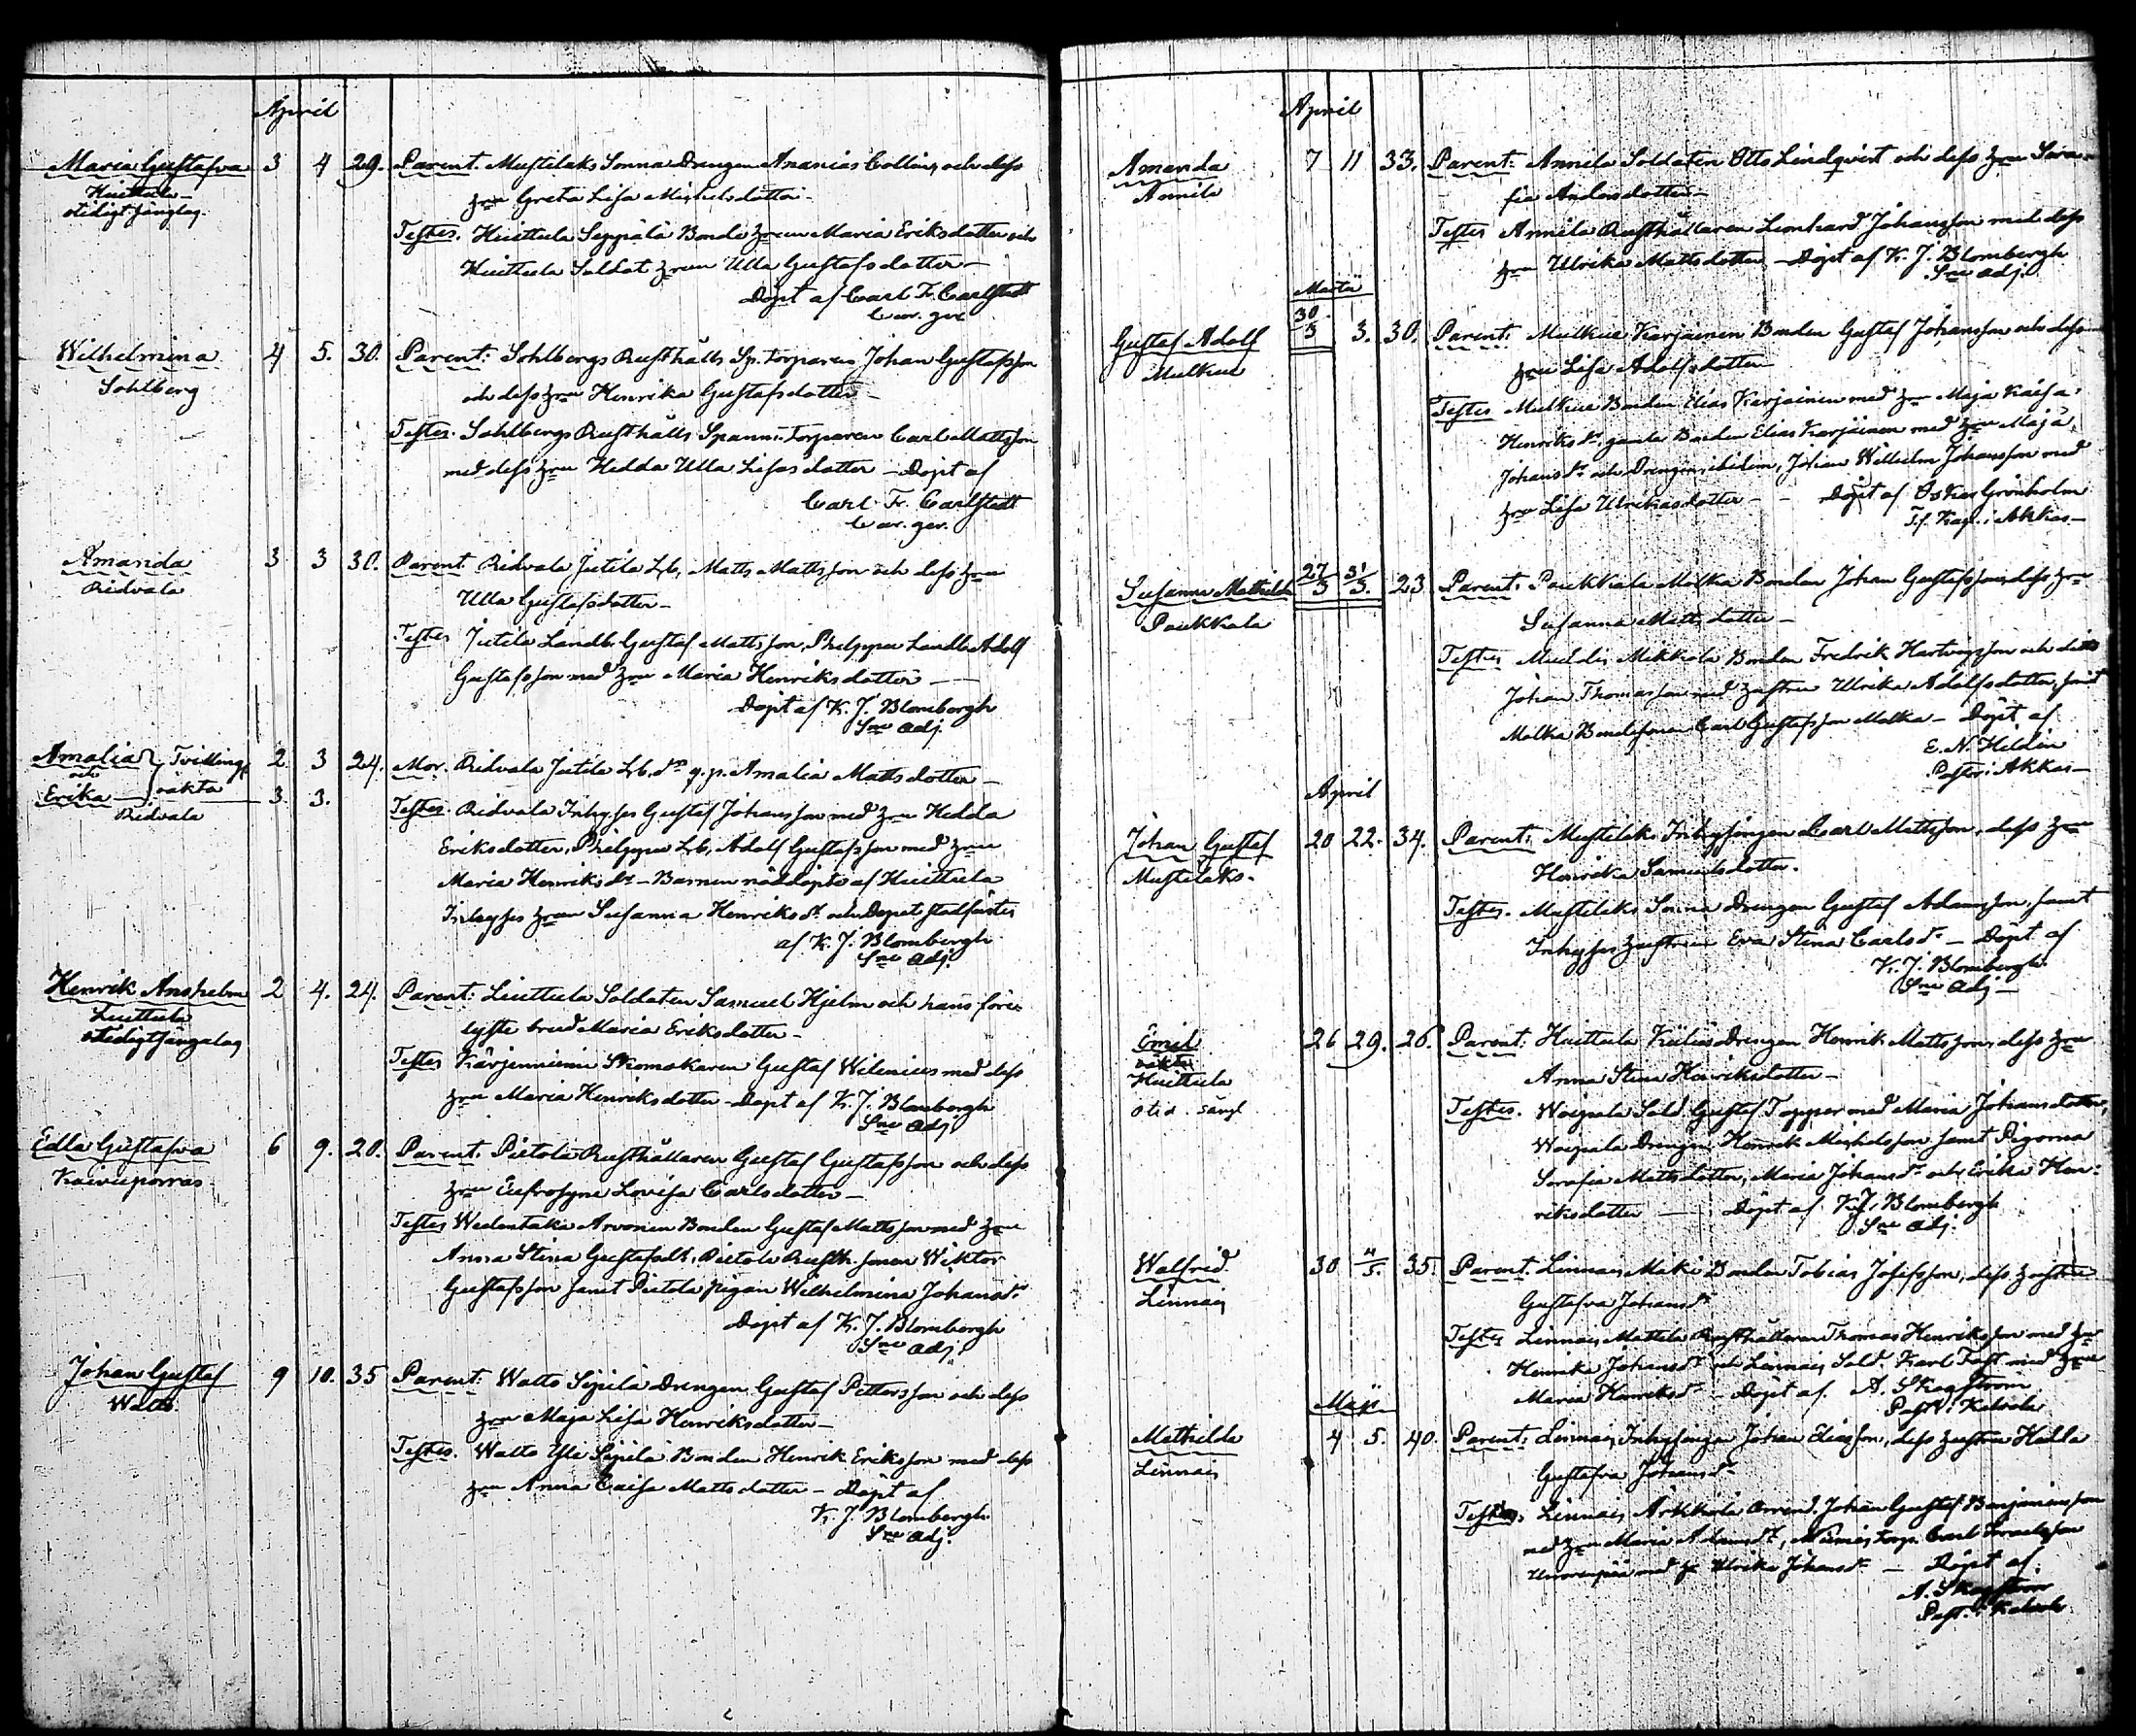 April
Maria Gustafva 3 4 29. Parent. Mustilaks Sonna Drengen Ananias Collin och dess
Huittula hru Greta Lisa Michelsdotter
otidigt sänglag. Testes. Huittula Seppälä Bonde hrun Maria Eriksdotter och
Huittula Soldat hrun Ulla Gustafsdotter
Döpt af Carl Fr. Carlstedt
Wilhelmina 4 5. 30. Parent: Sohlbergs Rusthålls Sp. torparen Johan Gustafsson
Sohlberg och dess hru Henrika Gustafsdotter
Testes. Sohlbergs Rusthålls Spanm. Torparen Carl Mattsson
med dess hru Hedda Ulla Lisasdotter – Döpt af
Carl Fr. Carlstedt
Amanda 3 3 30. Parent Ridvala Jutila Lb. Matts Mattsson och dess hru
Ridvala Ulla Gustafsdotter
Testes Jutila Landb. Gustaf Mattsson, Landb. Adolf
Gustafsson med hru Maria Henriksdotter
Döpt af K. J. Blombergh
Sne Adj.
Amalia Tvilling 2 3 24. Mor. Ridvala Jutila Lb. dr q.p. Amalia Mattsdotter
och oäkta
Erika 3 3. Testes. Ridvala Inhyses Gustaf Johansson med hru Hedda
Ridvala Eriksdotter, Lb. Adolf Gustafsson med hru
Maria Henriksdr – Barnen nöddöpte af Huittula
Inhyses hrun Susanna Henriksdr och Dopet stadfästes
af K. J. Blombergh
Sne Adj.
Henrik Anshelm 2 4. 24. Parent: Liuttula Soldaten Samuel Hjelm och hans före
Liuttula lyste brud Maria Eriksdotter
otidigt sängalag Testes Kärjenniemi Skomakaren Gustaf Wilenius med dess
hru Maria Henriksdotter Döpt af K. J. Blombergh
Sne Adj
Edla Gustafva 6 9. 20. Parent. Pietola Rusthållaren Gustaf Gustafsson och dess
Kaivuporras hru Eufrosyne Lovisa Carlsdotter
Testes Wedentaka Arvonen Bonden Gustaf Mattsson med hru
Anna Stina Gustafsdt, Pietola Rusth. sonen Wiktor
Gustafsson samt Pietola pigan Wilhelmina Johansdr
Döpt af K. J. Blombergh
Sne Adj.
Johan Gustaf 9 10. 35 Parent: Walto Sipilä Drengen Gustaf Pettersson och dess
Walto hru Maja Lisa Henriksdotter
Testes. Walto Yli Sipilä Bonden Henrik Eriksson med dess
hru Anna Caisa Mattsdotter – Döpt af
K. J. Blombergh
Sne Adj.
April
Amanda 7 11 33. Parent: Annila Soldaten Otto Lindqvist och dess hru Sera-
Annila fia Andersdotter
Testes Annila Rusthållaren Leonhard Johansson med dess
hru Ulrika Mattsdotter – Döpt af K. J. Blombergh
Sne Adj.
Marti
Gustaf Adolf 30/3 3. 30. Parent: Mulkue Karjainen Bonden Gustaf Johansson och dess
Mulkue hru Lisa Adolfsdotter
Testes Mulkue Bonden Elias Karjainen med hru Maja Kaisa
Henriksdr, gamla Bonden Elias Karjainen med hru Maja
Johansdr och Drengen ibidem, Johan Wilhelm Johansson med
hru Lisa Ulrikasdotter – Döpt af Oskar Grönholm
T.f. Kapl. i Akkas
Susanna Mathilda 27/3 31/3. 23 Parent: Paukkala Molka Bonden Johan Gustafsson, dess hru
Paukkala Susanna Mattsdotter
Testes Mikkola Bonden Fredrik Hartvigsson och dito
Johan Thomasson med hustru Ulrika Adolfsdotter, samt
Molka Bondesonen Carl Gustafsson Molka – Döpt af
E. N. Helden
Pastor i Akkas
April
Johan Gustaf 20 22. 34. Parent: Mustilaks Inhysingen Carl Mattsson, dess hru
Mustilaks. Henrika Samuelsdotter.
Testes. Mustilaks Sonna Drengen Gustaf Adamsson, samt
Inhyses hustrun Eva Stina Carlsdr – Döpt af
K. J. Blombergh
Sne Adj
Emil 26 29. 26. Parent: Huittula Drengen Henrik Mattsson, dess hru
oäkta Anna Stina Henriksdotter
Huittula
otid. sängl Testes. Woipala Sold. Gustaf Topper med Maria Johansdotter,
Woipala Drengen Henrik Michelsson samt Pigorna
Serafia Mattsdotter, Maria Johansdr och Erika Hen-
riksdotter – Döpt af K. J. Blombergh
Sne Adj.
Walfrid 30 4/5. 35. Parent. Linnais Mäki Bonden Tobias Josefsson, dess hustru
Linnais Gustafva Johansdr
Testes Linnais Mattila Rusthållaren Thomas Henriksson med hru
Henrika Johansdr och Linnais Sold. Karl Fast med hru
Maria Henriksdr – Döpt af A. Skogström
Past. i Kalvola
Maji
Mathilda 4 5. 40. Parent: Linnais Inhysingen Johan Eliasson, dess hustru Hedda
Linnais Gustafva Johansdr
Testes. Linnais Arkkola Arrend. Johan Gustaf Benjaminsson
med hru Maria Adamsdr, Torp. Carl
med hr Ulrika Johansdr – Döpt af
A. Skogström
Past. i Kalvola